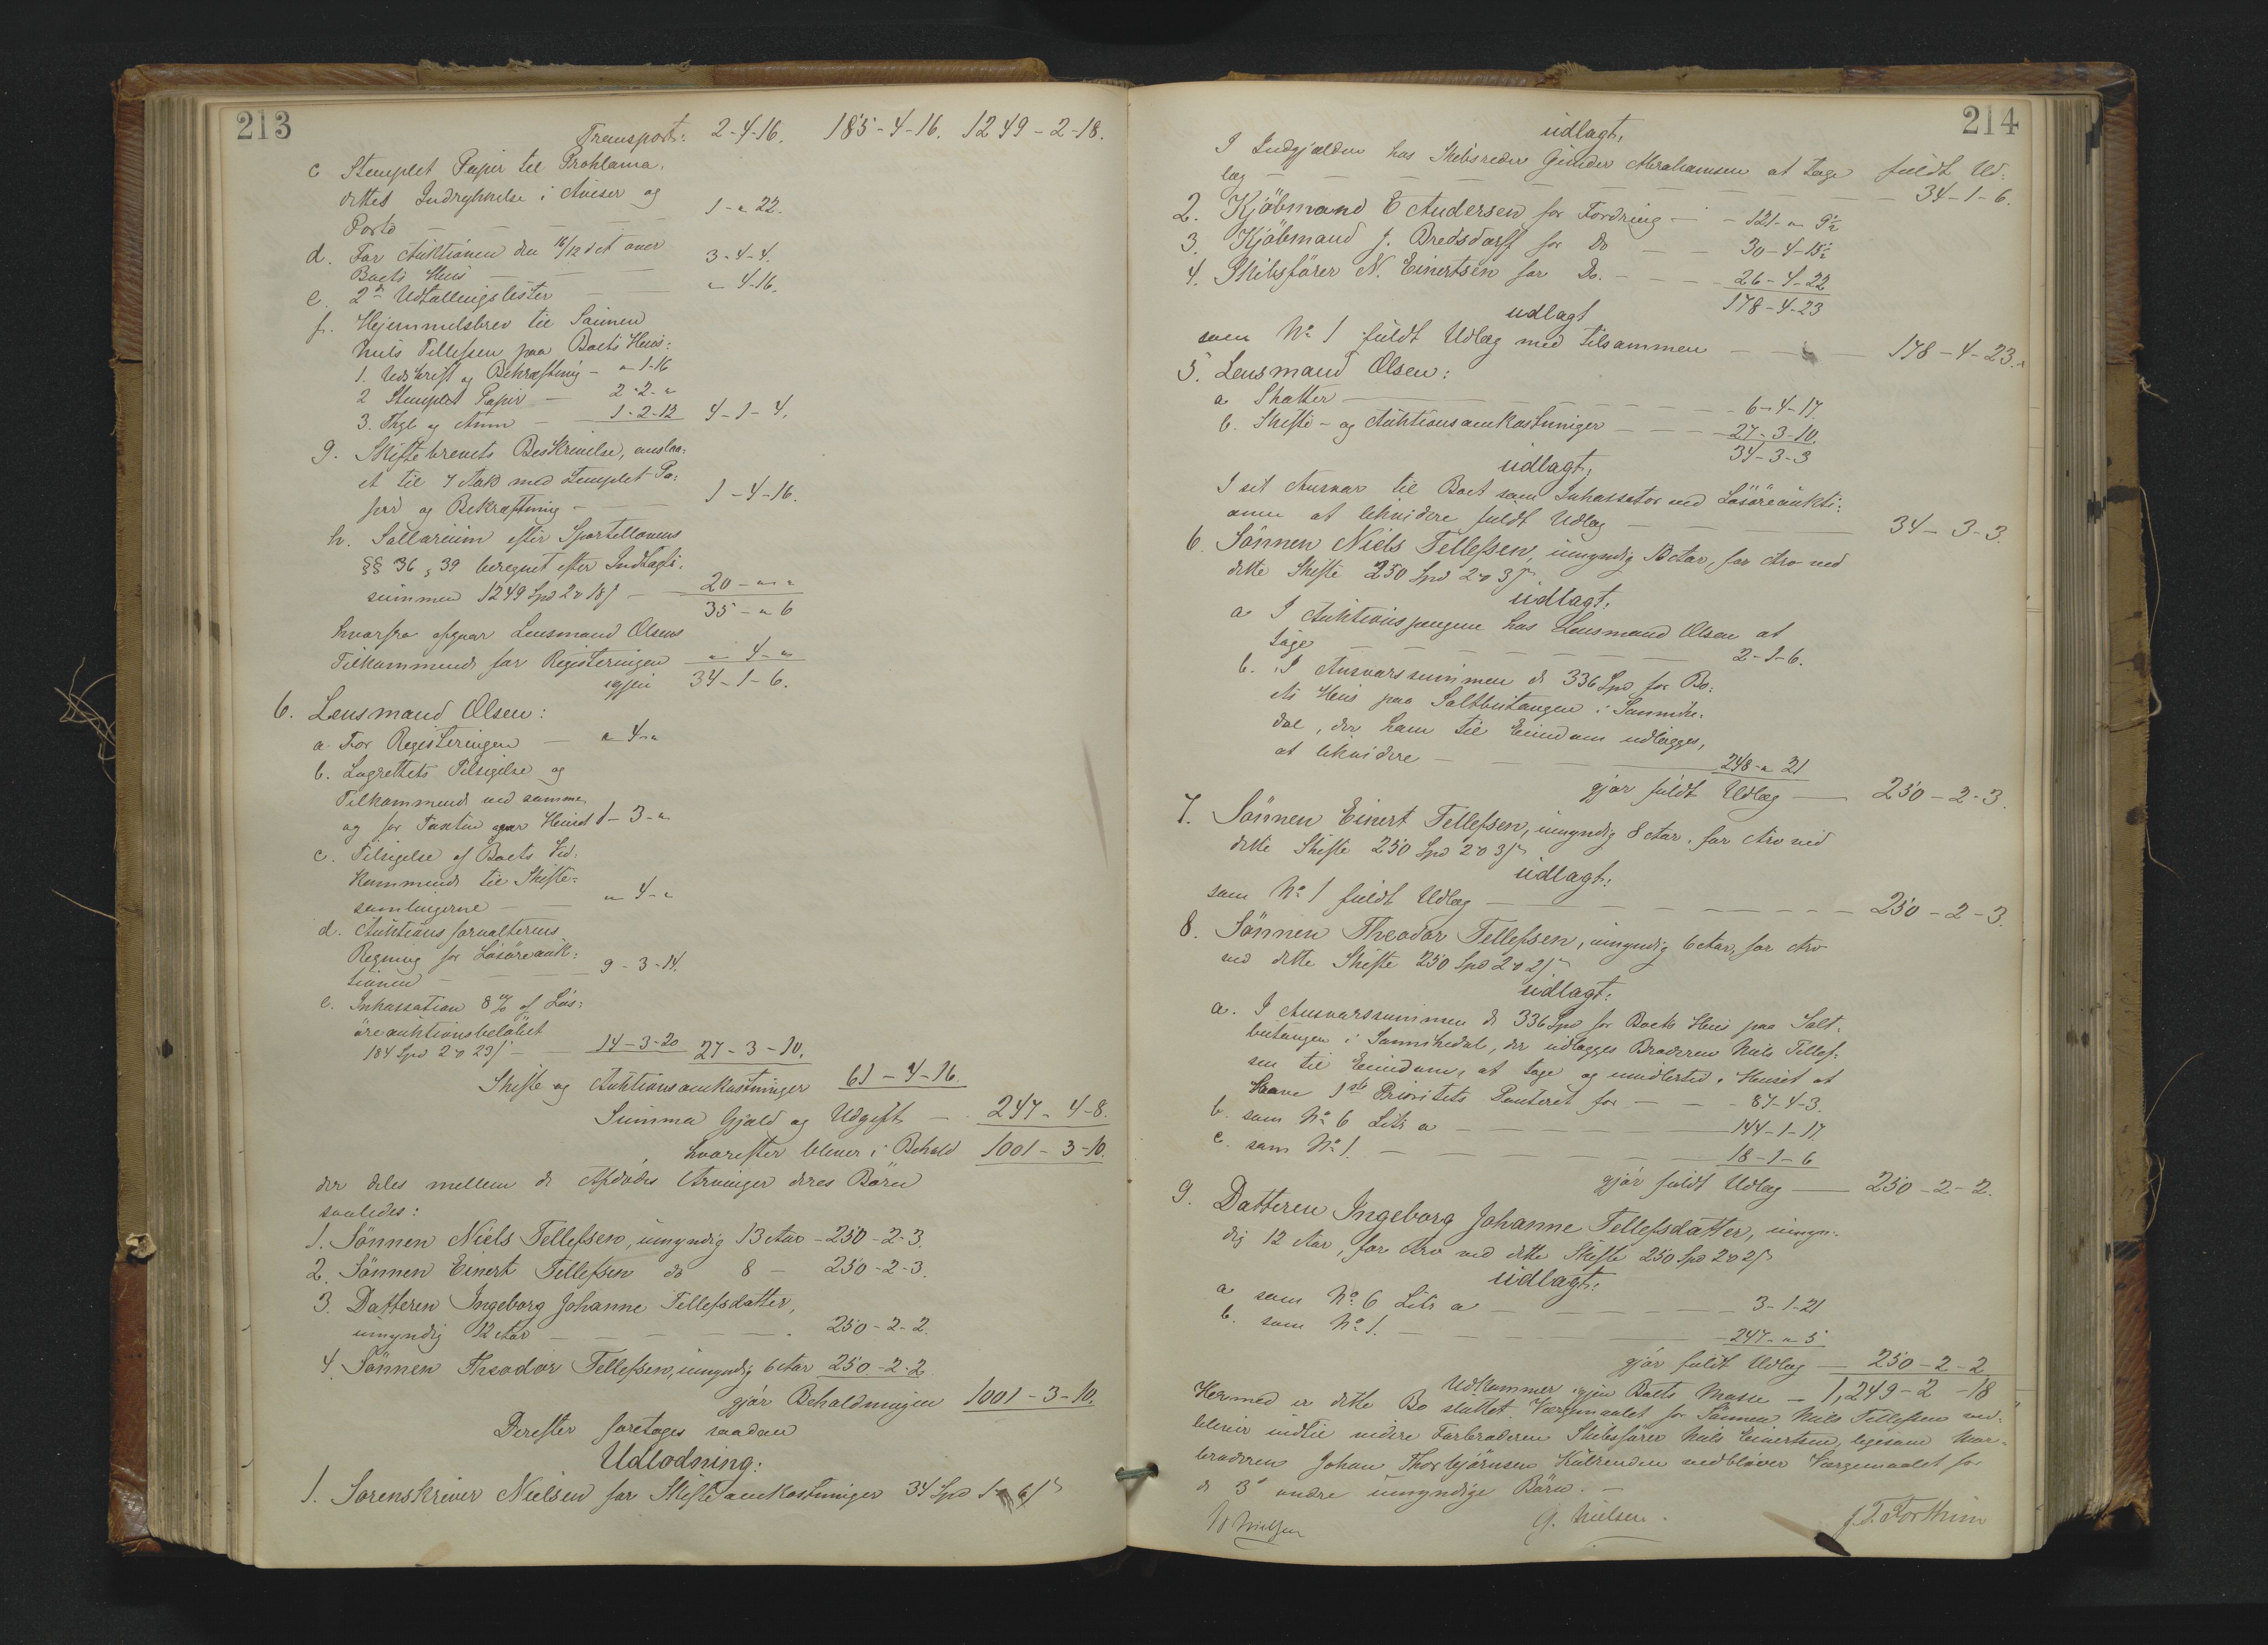 213
Transport: 2-4-16. 185-4-16. 1249-2-18.
c Stemplet Papir til Proklama,
dettes Indrykkelse i Aviser og
Porto — — — 1-"-22.
d. For Auktionen den 16/12 det over
Boets Huus — — — 3-4-4.
e. 2de Udtællingslister — — "-4-16.
f. Hjemmelsbrev til Sønnen
Niels Tellefsen paa Boets Huus:
1. Udskrift og Bekræftning - "-1-16
2 Stemplet Papir — 2-2-"
3. Thgl og Ann — 1-2-12 4-1-4.
g. Skiftebrevets Beskrivelse, anslaa-
et til 7 Ark med stemplet Pa-
pir og Bekræftning - — 1-4-16.
h. Sallarium efter Sportellovens
§§ 36, 39 beregnet efter Indtægts-
summen 1249 Spd 2 ort 18 s — 20-"-"
35-"-6
hvorfra afgaar Lensmand Olsens
Tilkommende for Registeringen "-4-"
igjen 34-1-6.
6. Lensmand Olsen:
a. For Registeringen — "-4-"
b. Lagrettets Tilsigelse og
Tilkommende ved samme
og for Taxten over Huset 1-3-"
c. Tilsigelse af Boets Ved-
kommende til Skifte-
samlingerne — — "-4-"
d. Auktionsforvalterens
Regning for Løsøreauk-
tionen — — — 9-3-14.
e. Inkassation 8 % af Løs-
øreauktionsbeløbet
184 Spd 2 ort 23 s — — 14-3-20 27-3-10.
Skifte og Auktionsomkostninger 61-4-16.
Summa Gjæld og Udgift — 247-4-8.
hvorefter bliver i Behold 1001-3-10.
der deles mellem de Afdødes Arvinger deres Börn
saaledes:
1. Sönnen Niels Tellefsen, umyndig 13 Aar - 250-2-3.
2. Sönnen Einert Tellefsen do 8 — 250-2-3.
3. Datteren Ingeborg Johanne Tellefsdatter,
umyndig 12 Aar — — — — 250-2-2.
4. Sönnen Theodor Tellefsen, umyndig 6 Aar 250-2-2
gjör Beholdningen 1001-3-10.
Derefter foretoges saadan
Udlodning:
1. Sorenskriver Nielsen for Skifteomkostninger 34 Spd 1 ort 6 s
214
udlagt,
I Indgjælden hos Skibsreder Gunder Abrahamsen at tage fuldt Ud-
læg — — — — — — — 34-1-6.
2. Kjöbmand E Andersen for Fordring — - 121-"-9½
3. Kjöbmand J. Bredsdorff for Do — — 30-4-15½
4. Skibsförer N. Einertsen for Do. — — — 26-4-22
178-4-23
udlagt
som No 1 fuldt Udlæg med tilsammen — — — 178-4-23.
5. Lensmand Olsen:
a Skatter — — — — — — — 6-4-17.
b. Skifte- og Auktionsomkostninger — — — 27-3-10.
34-3-3
udlagt,
I sit Ansvar til Boet som Inkassator ved Lösöreaukti-
onen at likvidere fuldt Udlæg — — — 34-3-3.
6. Sönnen Niels Tellefsen, umyndig 13 Aar, for Arv ved
dette Skifte 250 Spd 2 ort 3 s
udlagt:
a I Auktionspengene hos Lensmand Olsen at
tage — — — — — — — 2-1-6.
b. I Ansvarssummen de 336 Spd for Bo-
ets Huus paa Saltbutangen i Sannike-
dal, der ham til Eiendom udlægges,
at likvidere — — — — — 248-"-21
gjör fuldt Udlæg — 250-2-3.
7. Sönnen Einert Tellefsen, umyndig 8 Aar, for Arv ved
dette Skifte 250 Spd 2 ort 3 s
udlagt:
som No 1 fuldt Udlæg — — — — — — 250-2-3.
8. Sönnen Theodor Tellefsen, umyndig 6 Aar, for Arv
ved dette Skifte 250 Spd 2 ort 2 s
udlagt:
a. I Ansvarssummen de 336 Spd for Boets Huus paa Salt-
butangen i Sannikedal, der udlægges Broderen Niels Tellef-
sen til Eiendom, at tage og imidlertid i Huset at
have 1ste Prioritets Panteret for — — 87-4-3.
b. som No 6 Litr a — — — — — 144-1-17.
c. som No 1. — — — — — — 18-1-6
gjör fuldt Udlæg — 250-2-2.
9. Datteren Ingeborg Johanne Tellefsdatter, umyn-
dig 12 Aar, for Arv ved dette Skifte 250 Spd 2 ort 2 s
udlagt:
a som No. 6 Litr a — — — — — 3-1-21
b. som No 1. — — — — — — 247-"-5
gjör fuldt Udlæg — 250-2-2.
Udkommer igjen Boets Masse — 1,249-2-18
Hermed er dette Bo sluttet. Værgemaalet for Sønnen Niels Tellefsen ved-
bliver indtil videre Farbroderen Skibsförer Niels Einertsen, ligesom Mor-
broderen Johan Thorbjörnsen Kalrenden vedbliver Værgemaalet for
de 3 andre umyndige Börn. —
W Nielsen G. Nielsen. J. T. Forthun